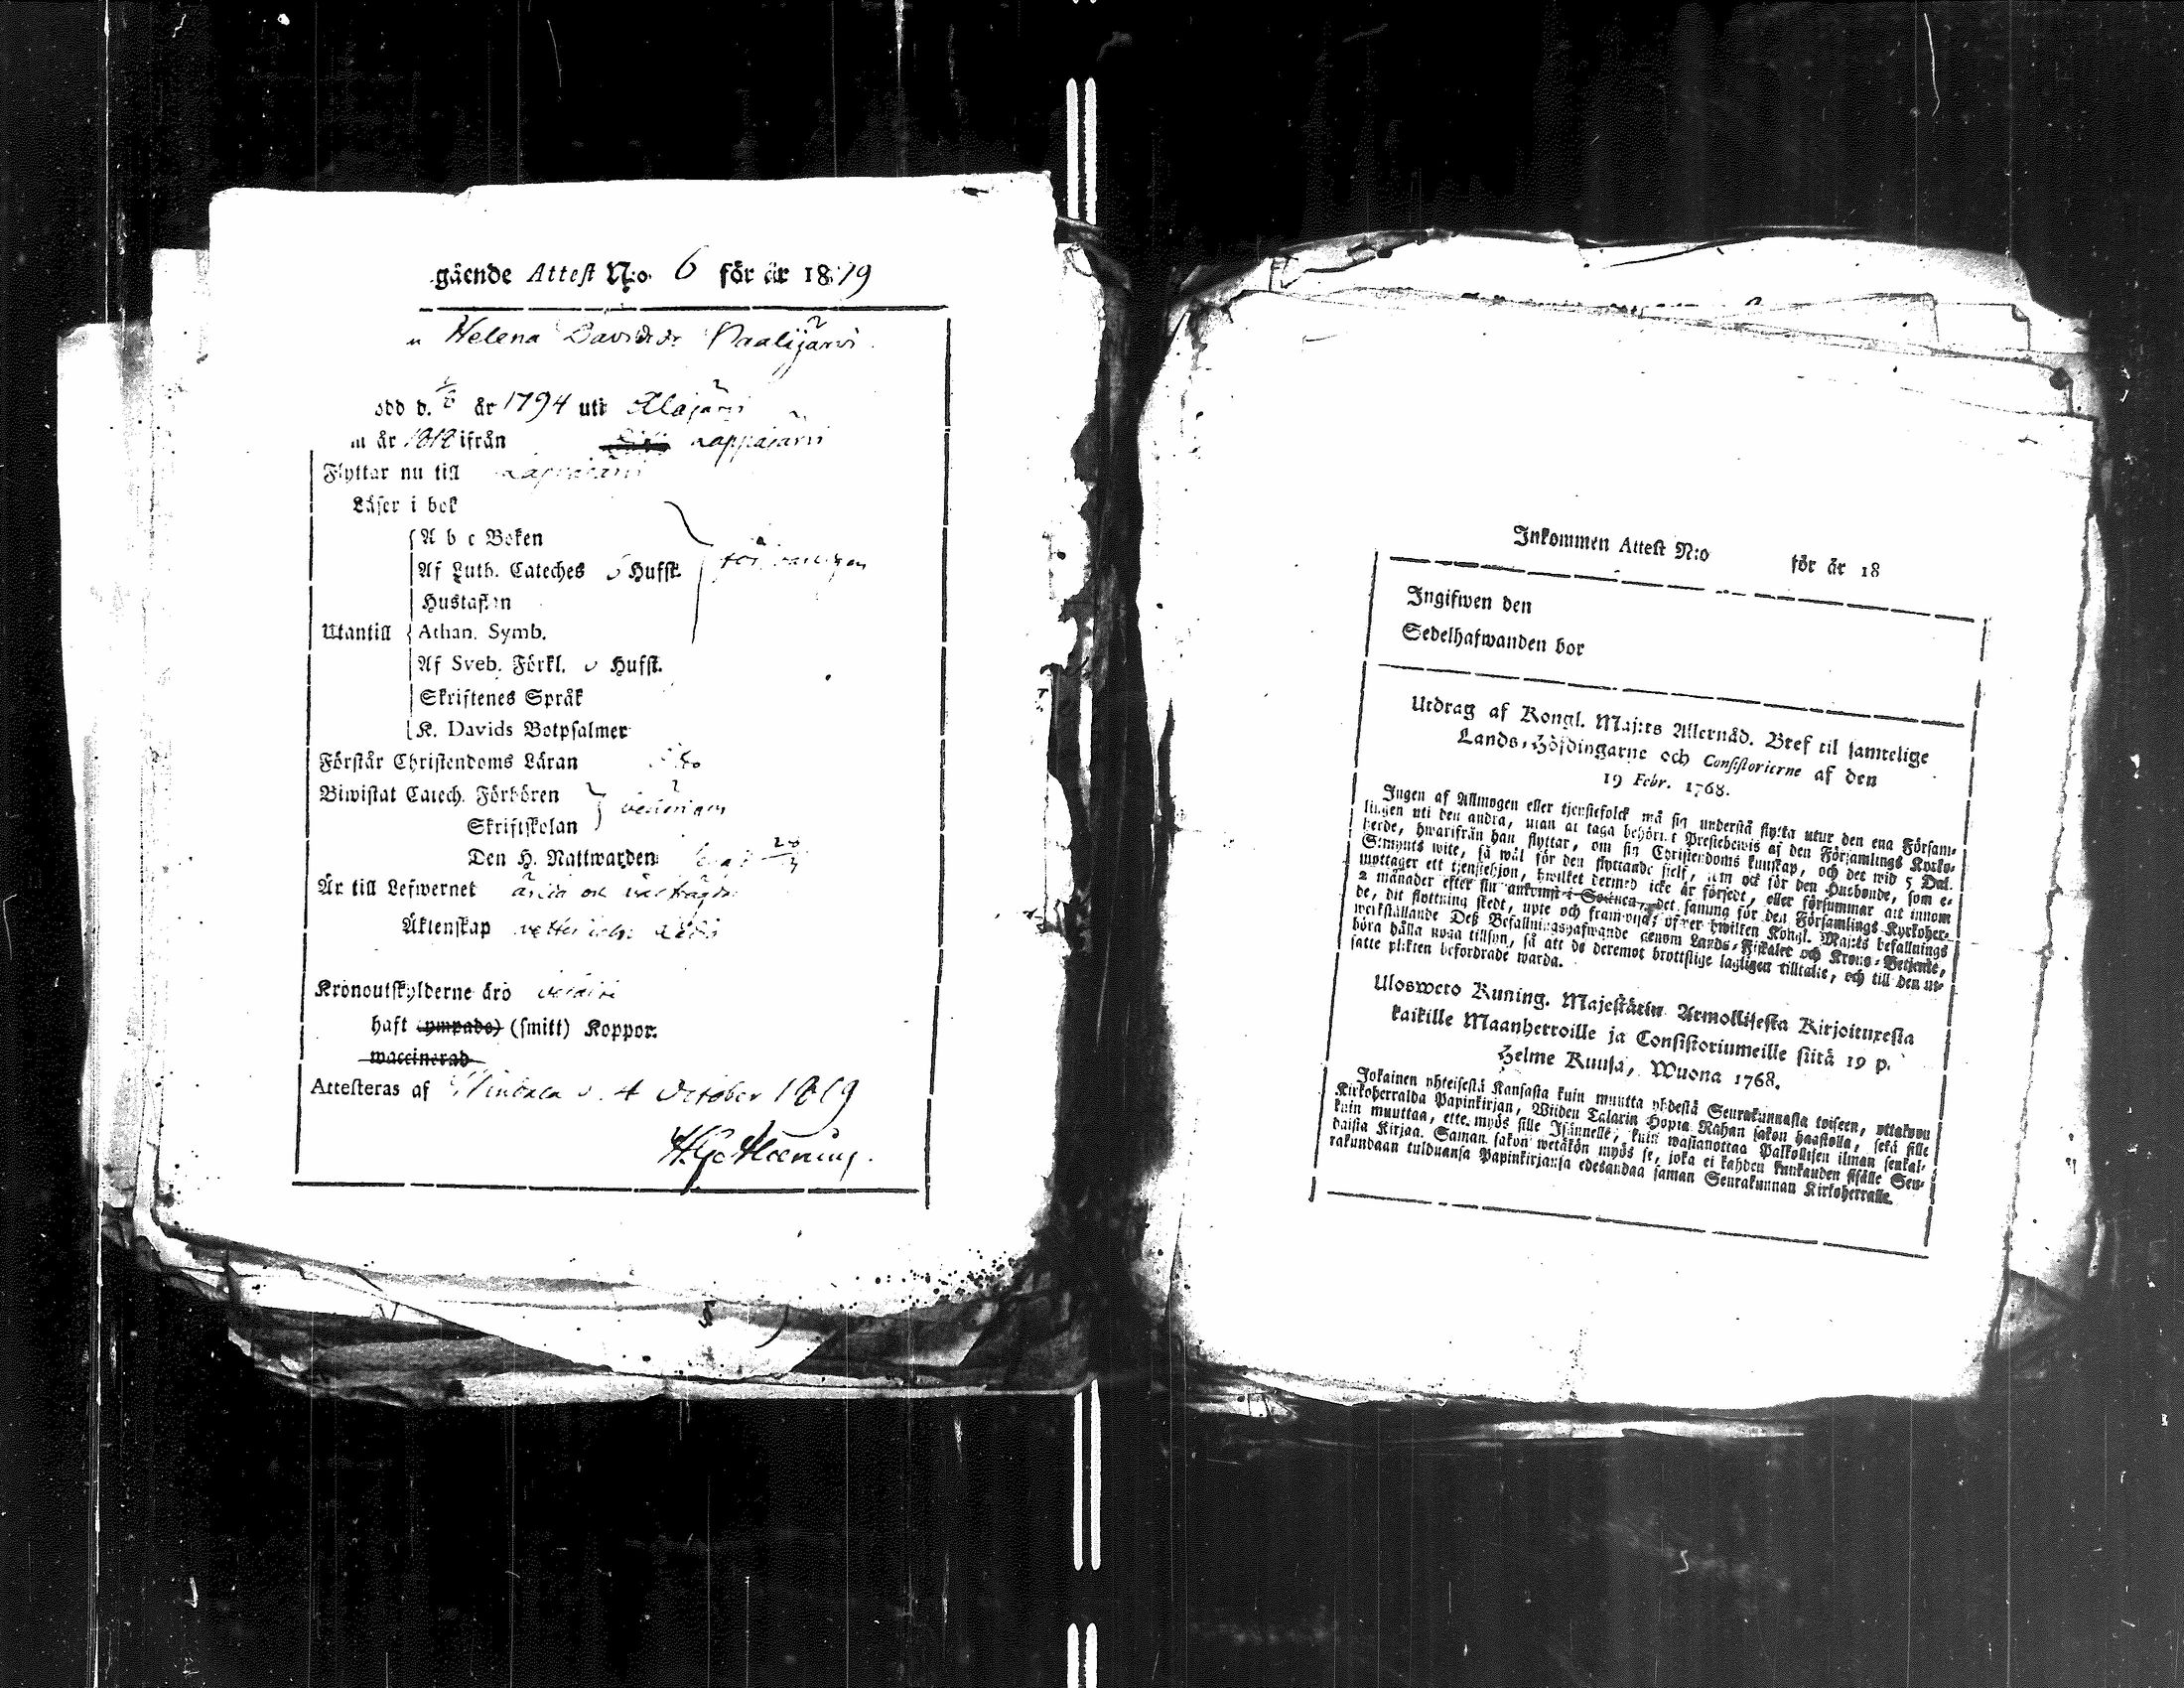 gående Attest N:o 6 för år 1819
Helena Davidsdr Paalijärvi
odd d. år 1794 uti Alajärvi
år 1818 ifrån Lappajärvi
Flyttar nu till Lappajärvi
Läser i bok
A b c Boken
Af Luth. Cateches 5 Hufst.
Hustaflan
Utantill Athan. Symb.
Af Sveb. Förkl. Hufst.
Skriftenes Språk
K. Davids Botpsalmer
Förstår Christendoms Läran
Biwistat Catech. Förhören
Skriftskolan
Den H. Nattwarden
Är till Lefwernet
Äktenskap
Kronoutskylderne äro
haft ympade) (smitt) Koppor.
waccinerad
Attesteras af d. 4 October 1819
Inkommen Attest N:o för år 18
Ingifwen den
Sedelhafwanden bor
Utdrag af Kongl. Maj:ts Allernåd. Bref til samtelige
Lands-Höfdingarne och Consistorierne af den
19 Febr. 1768.
Ingen af Allmogen eller tjenstefolck må sig understå flytta utur den ena Försam-
lingen uti den andra, utan at taga behörigt Prestebewis af den Församlings Kyrko-
herde, hwarifrån han flyttar, om sin Christendoms kunskap, och det wid 5 Dal.
S:mynts wite, så wäl för den flyttande sjelf, som ock för den Husbonde, som e-
mottager ett tjenstehjon, hwilket dermed icke är försedt, eller försummar att innom
2 månader efter sin ankomst i Socknen, det samma för den Församlings Kyrkoher-
de, dit flyttning skedt, upte och framwisa; öfwer hwilken Kongl. Maj:ts befallnings
werkställande Deß Befallningshafwande genom Lands-Fiskaler och Krono-Betjente,
böra hålla noga tillsyn, så att de deremot brottslige lagligen tilltalte, och till den ut-
satte plikten befordrade warda.
Ulosweto Kuning. Majestätin Armollisesta Kirjoituxesta
kaikille Maanherroille ja Consistoriumeille siitä 19 p.
Helme Kuusa, Wuona 1768.
Jokainen yhteisestä Kansasta kuin muutta yhdestä Seurakunnasta toiseen, ottakoon
Kirkoherralda Papinkirjan, Wiiden Talarin Hopia Rahan sakon haastolla, sekä sille
kuin muuttaa, että myös sille Isännelle, kuin wastanottaa Palkollisen ilman senkal-
daista Kirjaa. Saman sakon wetäkön myös se, joka ei kahden kuukauden sisälle Seu-
rakundaan tulduansa Papinkirjansa edesandaa saman Seurakunnan Kirkoherralle.